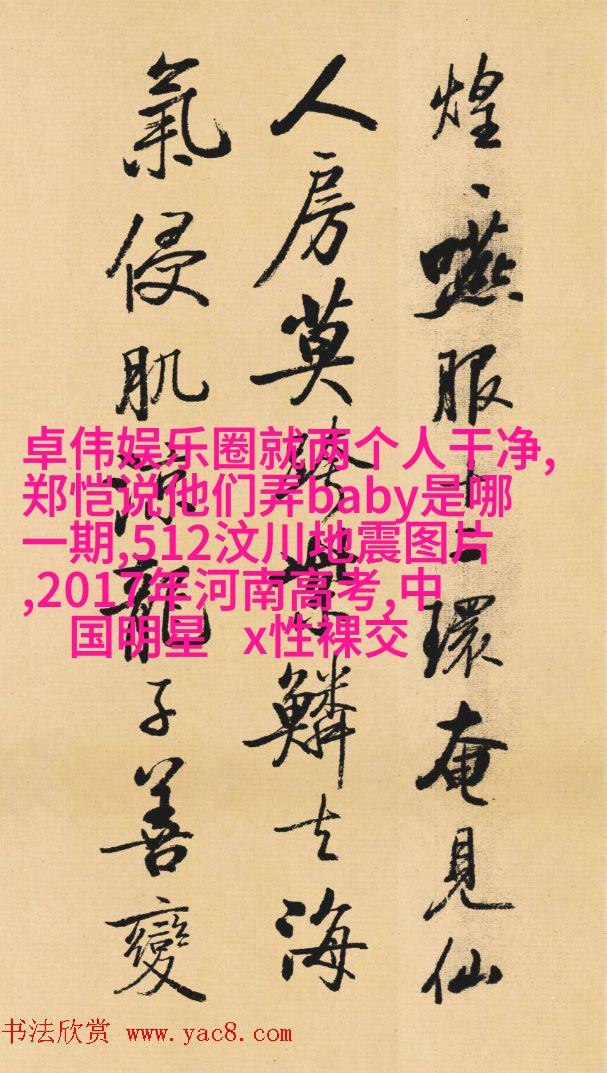 煌、嚥服十二環奄見仙
人房莫跨紫鱗去海
氣侵肌涼龍子善變
卓伟娱乐圈就两个人干净,
郑恺说他们弄baby是哪
一期,512汶川地震图片
,2017年河南高考,中
国明星 x性裸交
书法欣赏 www.yac8.com